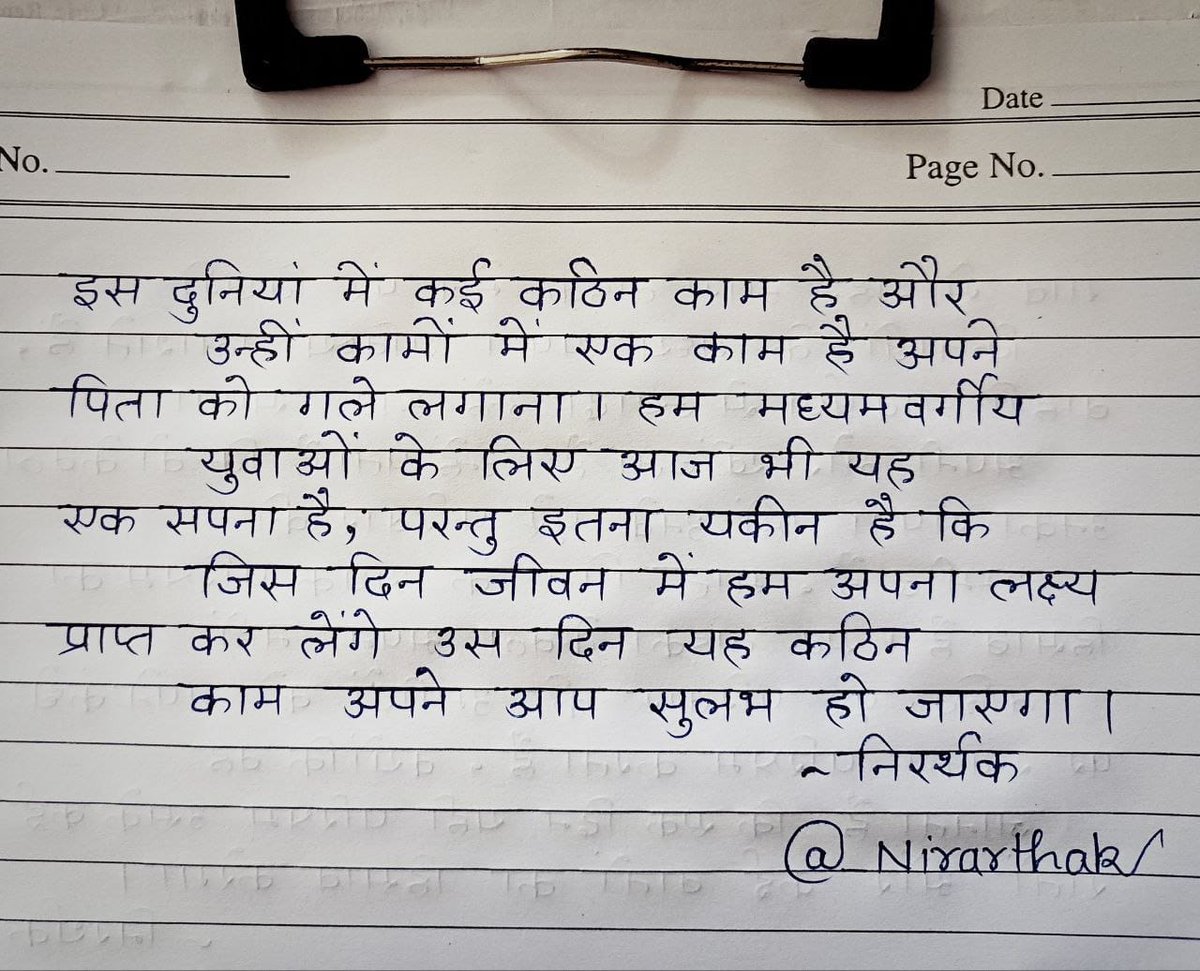 Date
No.
Page No.
इस दुनियां में कई कठिन काम है और
उन्हीं कामों में एक काम है अपने
पिता को गले लगाना। हम मध्यमवर्गीय
युवाओं के लिए आज भी यह
एक सपना है, परन्तु इतना यकीन है कि
जिस दिन जीवन में हम अपना लक्ष्य
प्राप्त कर लेंगे उस दिन यह कठिन
काम अपने आप सुलभ हो जाएगा।
~ निरर्थक
@Nirarthak